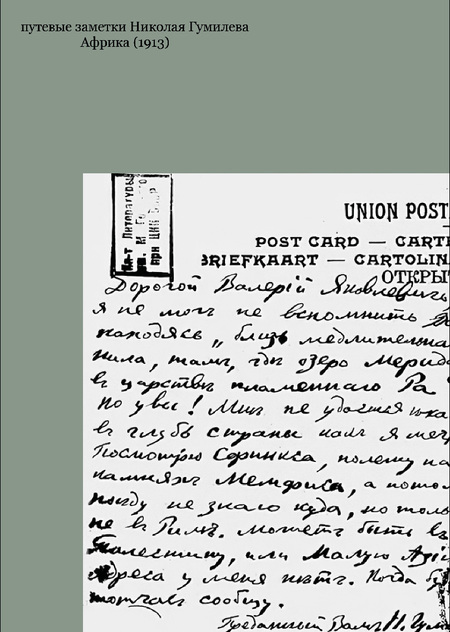 путевые заметки Николая Гумилева
Африка (1913)
UNION POST
POST CARD — CARTE
BRIEFKAART — CARTOLIN
ОТКРЫТ
Дорогой Валерій Яковлевичъ
я не могъ не вспомнить
находясь „близь медлительна
Нила, тамъ, гдѣ озеро Мерида
въ царствѣ пламеннаго Ра
Но увы! Мнѣ не удается
въ глубь страны какъ я меч
Посмотрю Сфинкса, полежу на
камняхъ Мемфиса, а потом
поѣду не знаю куда, но толь
не въ Римъ. Можетъ быть въ
Палестину, или Малую Азі
Адреса у меня нѣтъ. Когда бу
тотчасъ сообщу.
Преданный Вамъ Н. Гум